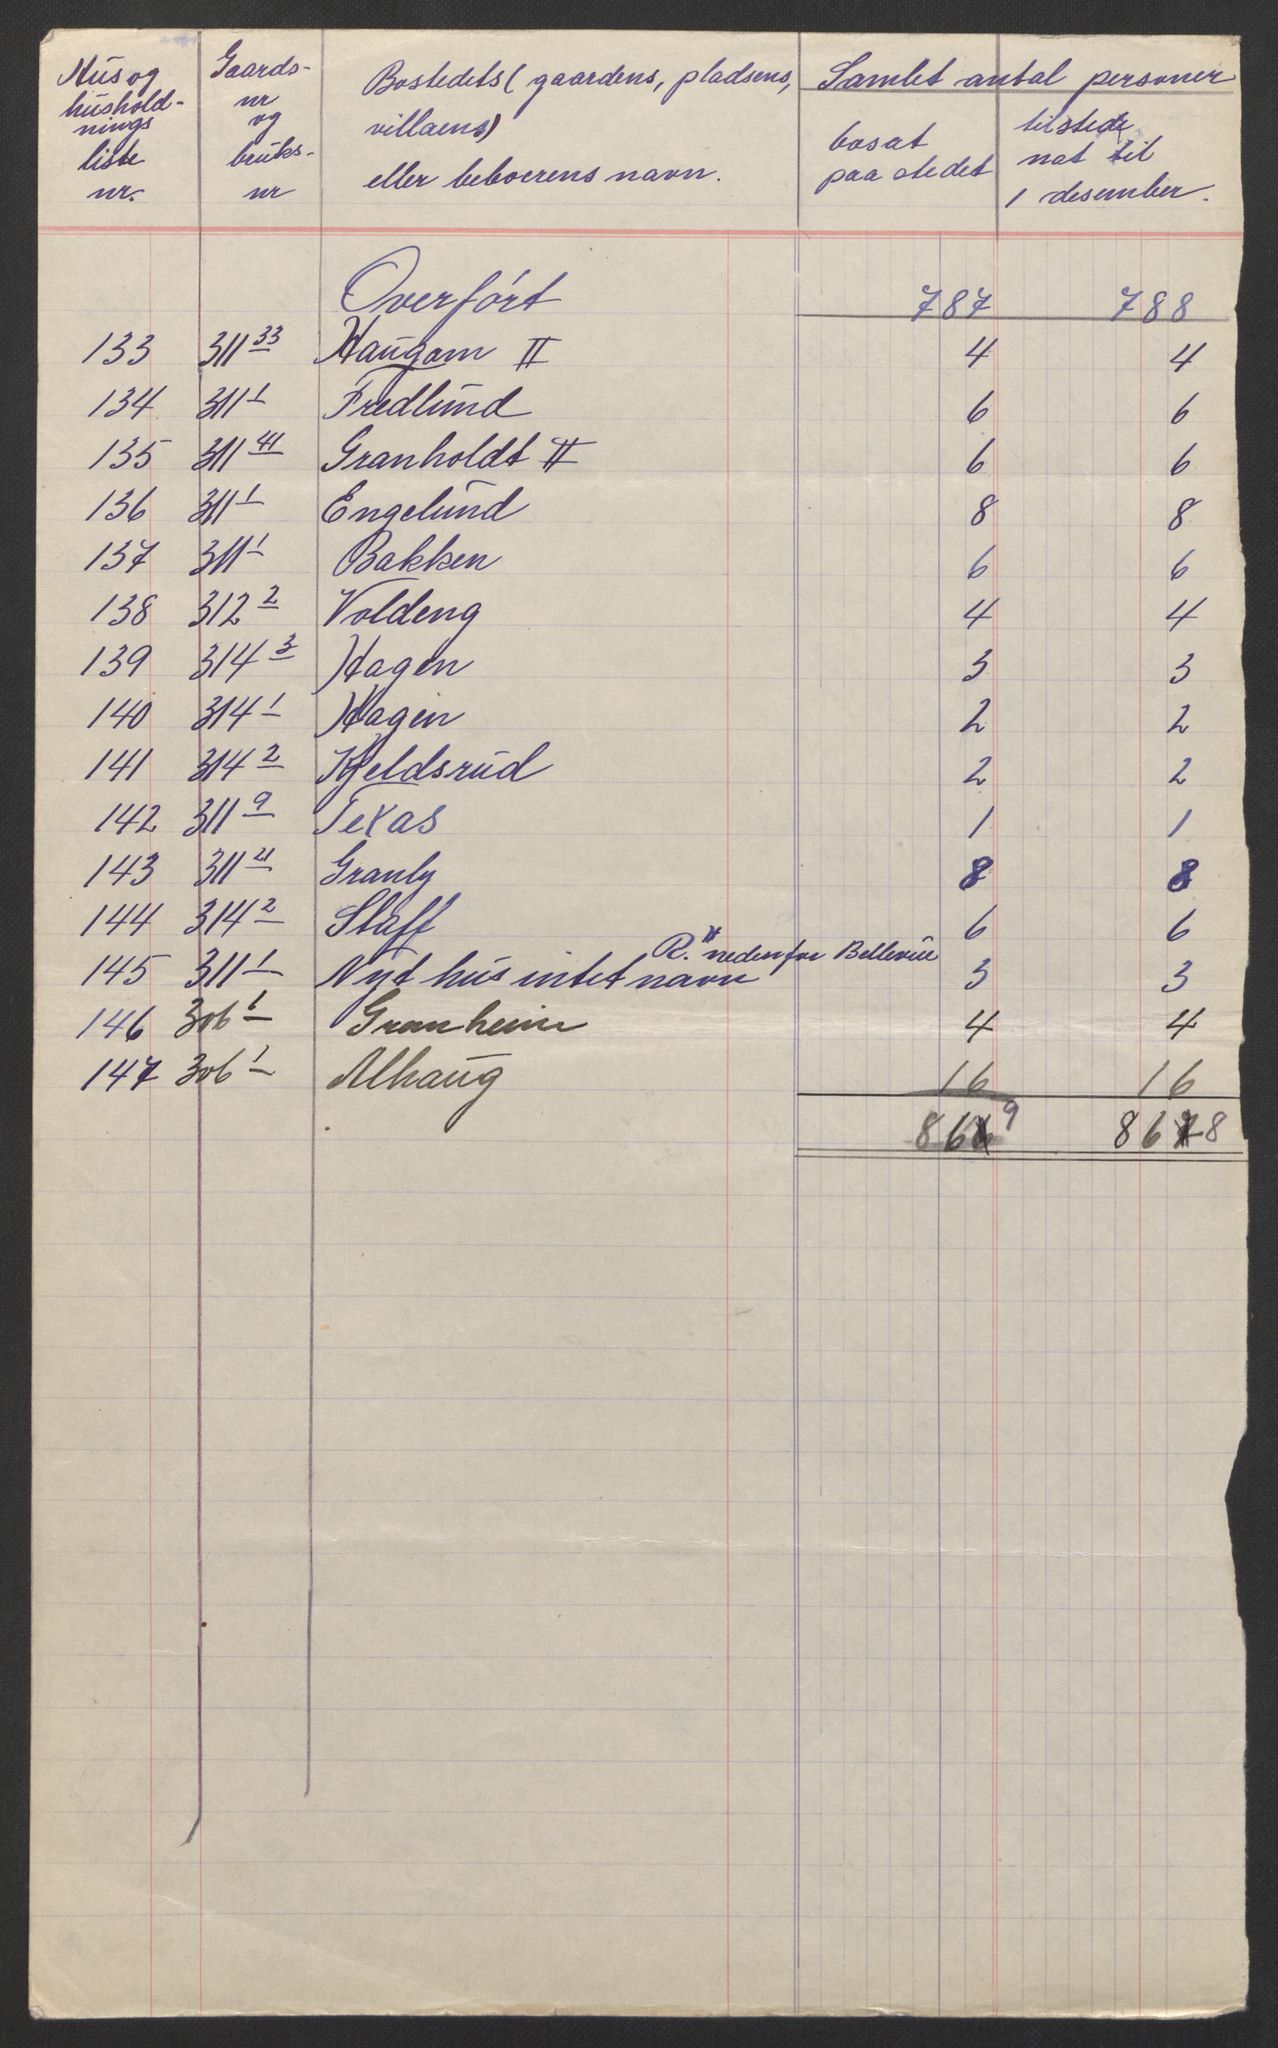 Hus og husholdnings liste nr.
Gaards-nr og bruks-nr
Bostedets (gaardens, pladsens, villaens) eller beboerens navn.
Samlet antal personer
bosat paa stedet
tilstede nat til 1 desember.
Overført 787 788
133 311 33 Haugom II 4 4
134 311 1 Fredlund 6 6
135 311 41 Granholdt II 6 6
136 311 1 Engelund 8 8
137 311 1 Bakken 6 6
138 312 2 Voldeng 4 4
139 314 3 Hagen 3 3
140 314 1 Hagen 2 2
141 314 2 Kjeldsrud 2 2
142 311 9 Texas 1 1
143 311 21 Granly 8 8
144 314 2 Staff 6 6
nedenfor Bellevue
145 311 1 Nyt hus intet navn 3 3
146 306 1 Granheim 4 4
147 306 1 Alhaug 16 16
869 868